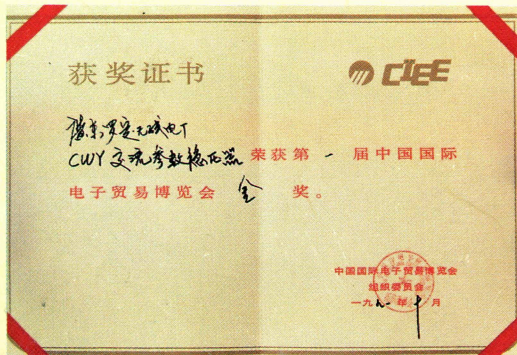 获奖证书
CIEE
罗定无线电厂
CWY交流参数稳压器荣获第一届中国国际
电子贸易博览会金奖。
中国国际电子贸易博览会
组织委员会
一九九一年十月